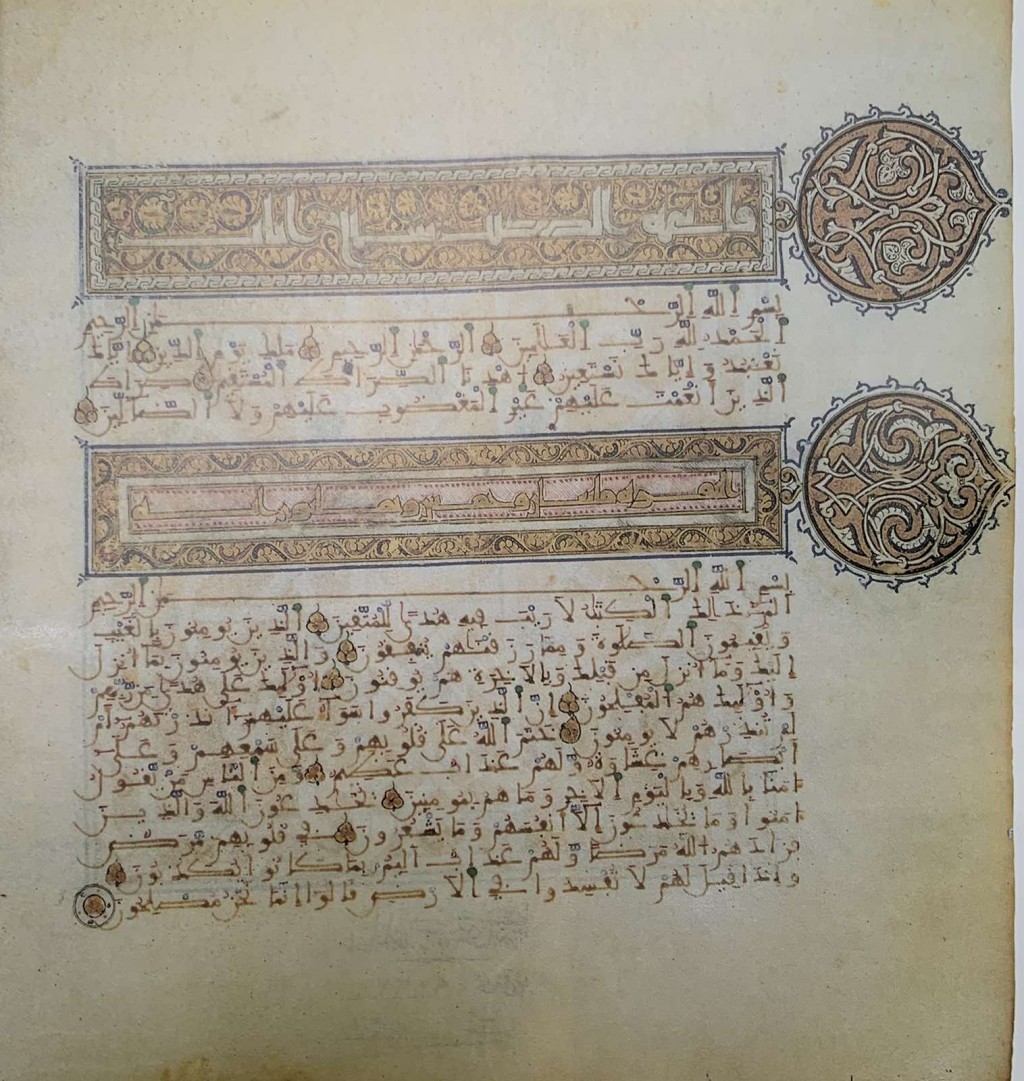 بسم الله الرحمن الرحيم
الحمد لله رب العلمين الرحمن الرحيم ملك يوم الدين إياك
نعبد وإياك نستعين اهدنا الصراط المستقيم صراط
الذين أنعمت عليهم غير المغضوب عليهم ولا الضالين
بسم الله الرحمن الرحيم
الم ذلك الكتب لا ريب فيه هدى للمتقين الذين يومنون بالغيب
ويقيمون الصلوة ومما رزقنهم ينفقون والذين يومنون بما أنزل
إليك وما أنزل من قبلك وبالاخرة هم يوقنون أولئك على هدى من ربهم
وأولئك هم المفلحون إن الذين كفروا سواء عليهم ءانذرتهم أم
لم تنذرهم لا يومنون ختم الله على قلوبهم وعلى سمعهم وعلى
أبصرهم غشوة ولهم عذاب عظيم ومن الناس من يقول
ءامنا بالله وباليوم الاخر وما هم بمومنين يخدعون الله والذين
ءامنوا وما يخدعون إلا أنفسهم وما يشعرون في قلوبهم مرض
فزادهم الله مرضا ولهم عذاب أليم بما كانوا يكذبون
وإذا قيل لهم لا تفسدوا في الارض قالوا إنما نحن مصلحون